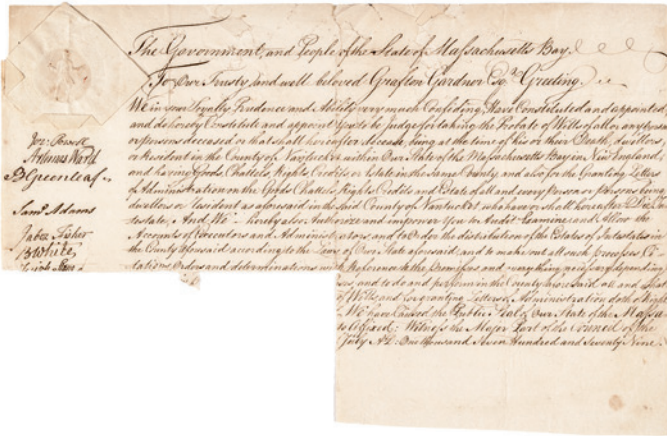 The Government, and People of the State of Massachusetts Bay.
To Our Trusty and well beloved Grafton Gardner Esqr. Greeting.
We in your Loyalty Prudence and Ability very much Confiding, Have Constituted and appointed
and do hereby Constitute and appoint You to be Judge for taking the Probate of Wills of all or any person
or persons deceased or that shall hereafter decease, being at the time of his or their Death, dwellers,
or Resident in the County of Nantucket within Our State of the Massachusetts Bay in New England,
and having Goods, Chattels, Rights, Credits or Estate in the same County, and also for the Granting Letters
of Administration on the Goods Chattels, Rights Credits and Estate of all and every Person or Persons being
dwellers or Resident as aforesaid in the said County of Nantucket, who have or shall hereafter Die In-
testate, And, We hereby also Authorize and impower You to Audit Examine and Allow the
Accounts of Executors and Administrators and to Order the distribution of the Estates of Intestates in
the County aforesaid according to the Laws of Our State aforesaid, and to make out all such Processes, Ci-
tations Orders and determinations with Reference to the Premises and everything necessary depending
and to do and perform in the County aforesaid all and
of Wills, and for granting Letters of Administration doth of Right
We have Caused the Public Seal of Our State of the Massa
to Affixed: Witness the Major Part of the Council of the
July AD: One thousand Seven Hundred and Seventy Nine.
Jer: Powell
Artemas Ward
B Greenleaf
Saml Adams
Jabez Fisher
B White